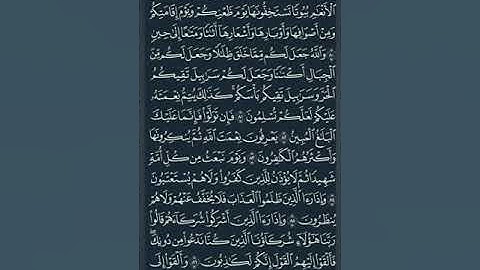 ٱلْأَنْعَٰمِ بُيُوتًا تَسْتَخِفُّونَهَا يَوْمَ ظَعْنِكُمْ وَيَوْمَ إِقَامَتِكُمْ
وَمِنْ أَصْوَافِهَا وَأَوْبَارِهَا وَأَشْعَارِهَآ أَثَٰثًا وَمَتَٰعًا إِلَىٰ حِينٍ
۝٨٠ وَٱللَّهُ جَعَلَ لَكُم مِّمَّا خَلَقَ ظِلَٰلًا وَجَعَلَ لَكُم مِّنَ
ٱلْجِبَالِ أَكْنَٰنًا وَجَعَلَ لَكُمْ سَرَٰبِيلَ تَقِيكُمُ
ٱلْحَرَّ وَسَرَٰبِيلَ تَقِيكُم بَأْسَكُمْ ۚ كَذَٰلِكَ يُتِمُّ نِعْمَتَهُۥ
عَلَيْكُمْ لَعَلَّكُمْ تُسْلِمُونَ ۝٨١ فَإِن تَوَلَّوْا۟ فَإِنَّمَا عَلَيْكَ
ٱلْبَلَٰغُ ٱلْمُبِينُ ۝٨٢ يَعْرِفُونَ نِعْمَتَ ٱللَّهِ ثُمَّ يُنكِرُونَهَا
وَأَكْثَرُهُمُ ٱلْكَٰفِرُونَ ۝٨٣ وَيَوْمَ نَبْعَثُ مِن كُلِّ أُمَّةٍ
شَهِيدًا ثُمَّ لَا يُؤْذَنُ لِلَّذِينَ كَفَرُوا۟ وَلَا هُمْ يُسْتَعْتَبُونَ
۝٨٤ وَإِذَا رَءَا ٱلَّذِينَ ظَلَمُوا۟ ٱلْعَذَابَ فَلَا يُخَفَّفُ عَنْهُمْ وَلَا هُمْ
يُنظَرُونَ ۝٨٥ وَإِذَا رَءَا ٱلَّذِينَ أَشْرَكُوا۟ شُرَكَآءَهُمْ قَالُوا۟
رَبَّنَا هَٰٓؤُلَآءِ شُرَكَآؤُنَا ٱلَّذِينَ كُنَّا نَدْعُوا۟ مِن دُونِكَ ۖ
فَأَلْقَوْا۟ إِلَيْهِمُ ٱلْقَوْلَ إِنَّكُمْ لَكَٰذِبُونَ ۝٨٦ وَأَلْقَوْا۟ إِلَى